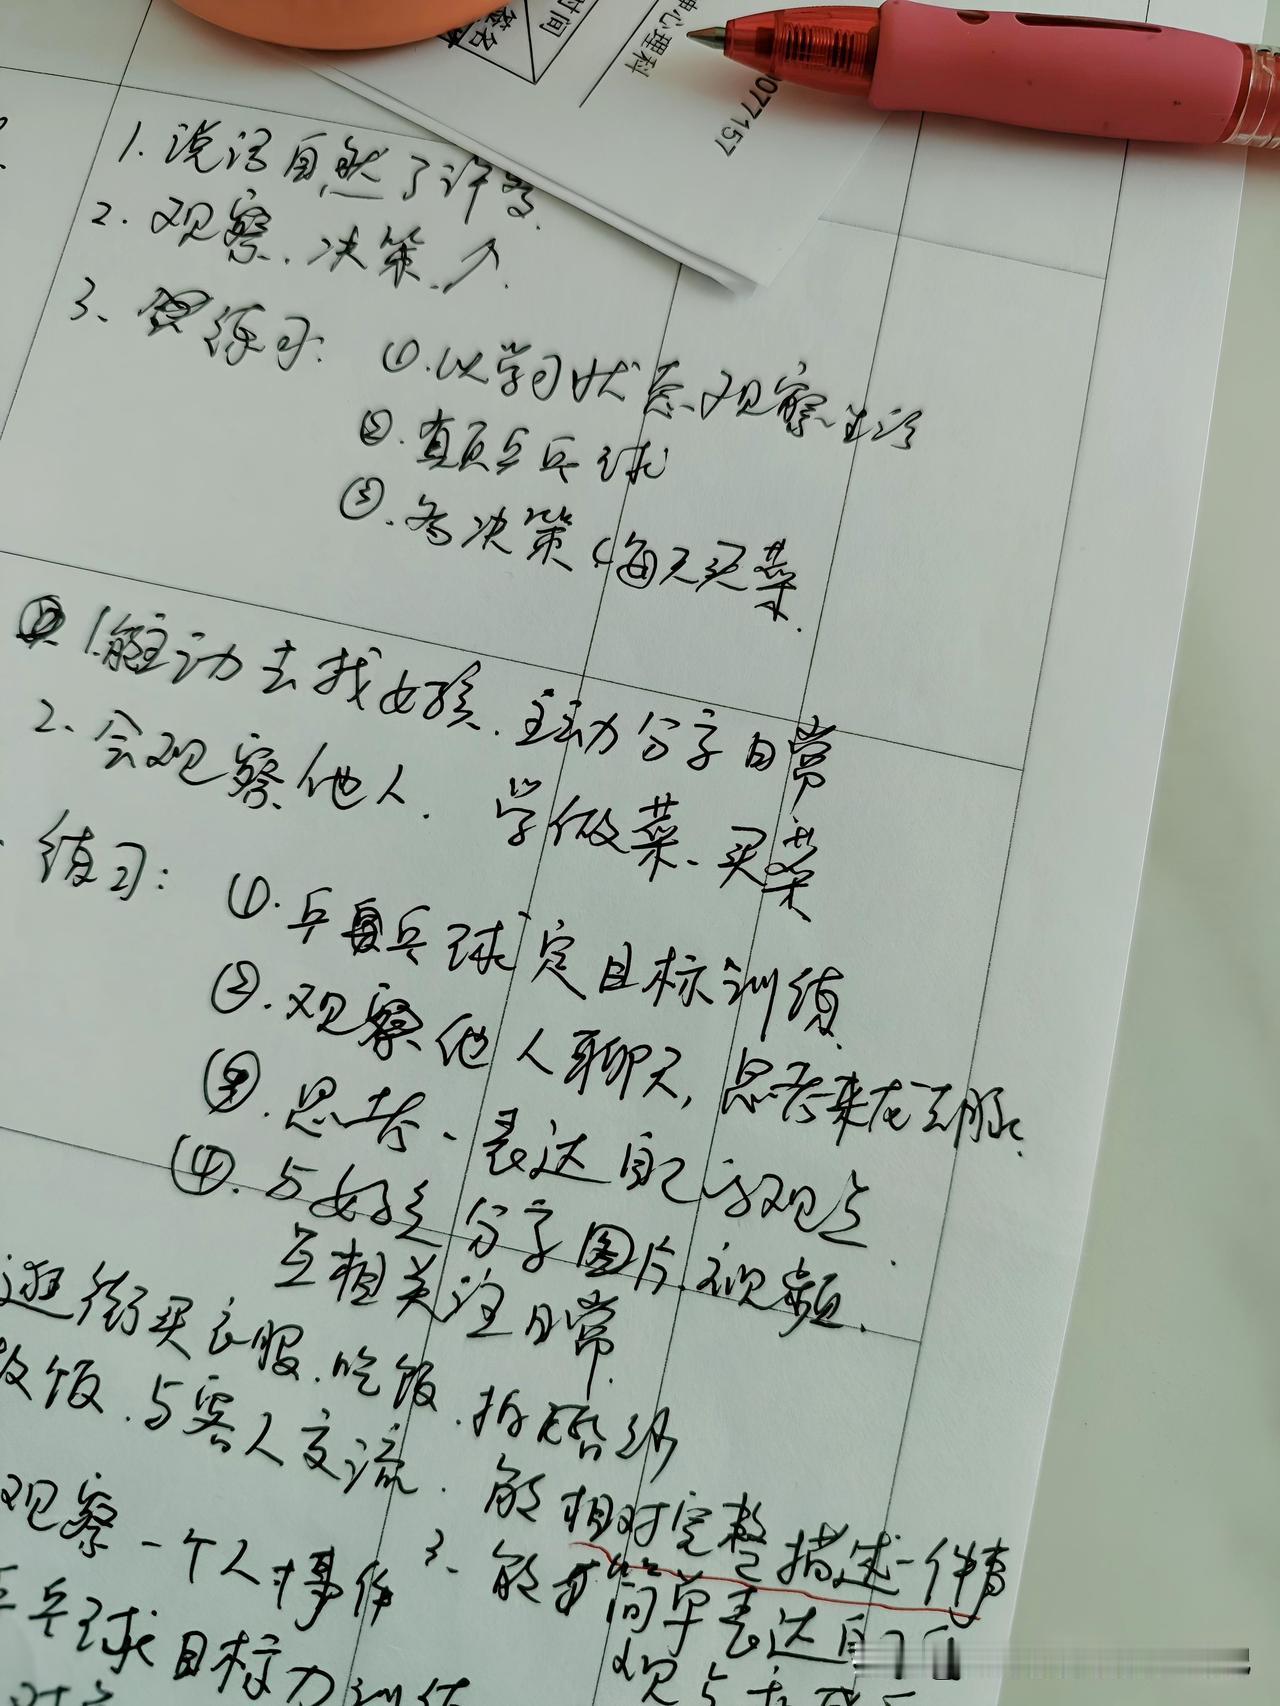 签名
时间
心理科
0077157
1. 说话自然了许多.
2. 观察、决策↗.
3、练习: ①.以学习状态观察生活
②.颠乒乓球
③.为决策(每天买菜.
1.能主动去找女孩.主动分享日常
2、会观察他人. 学做菜、买菜
练习: ①.乒乓球定目标训练.
②.观察他人聊天,思考来龙去脉.
③.思考、表达自己的观点.
④.与女孩分享图片、视频.
互相关注日常.
逛街买衣服.吃饭.拍婚纱
饭.与客人交流.
能相对完整描述一件事
观察一个人或事件 3、能简单表达自己
乒球目标训练